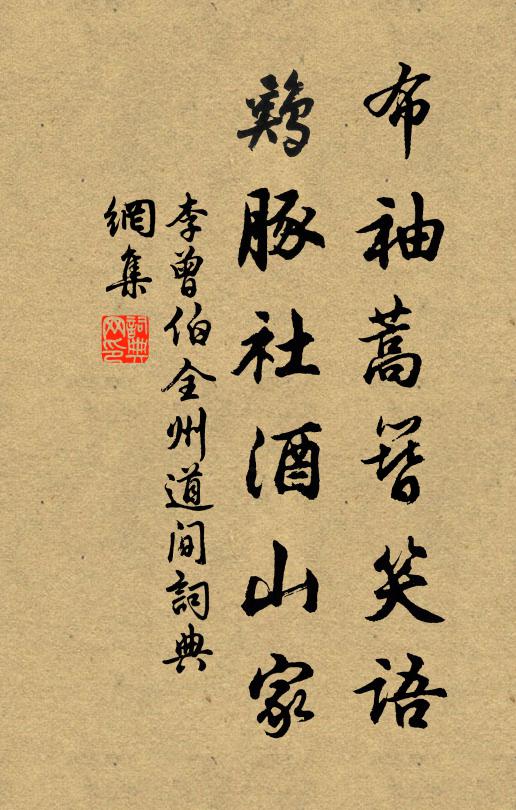 布袖蒿簪笑语
鷄豚社酒山家
李曾伯全州道间詞典
網集
詞典
网印